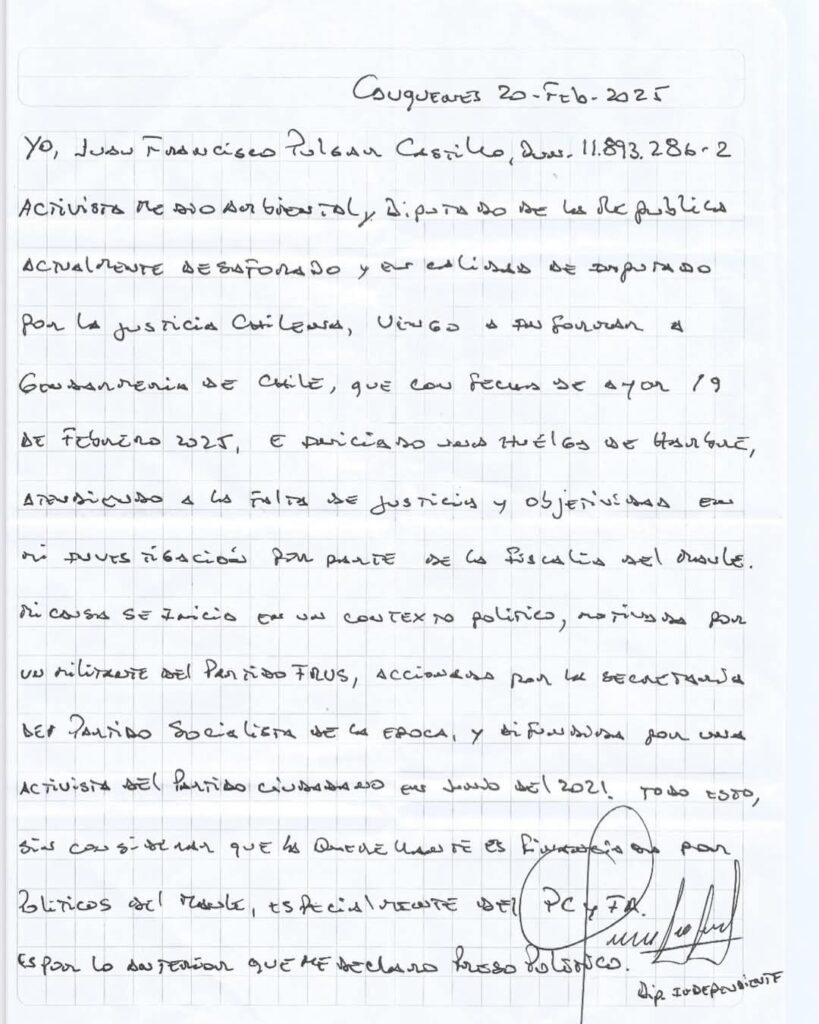 Cauquenes 20-Feb-2025
Yo, Juan Francisco Pulgar Castillo, Run. 11.893.286-2
Activista Medioambiental, y Diputado de la Republica
actualmente desaforado y en calidad de imputado
por la justicia Chilena, vengo a informar a
Gendarmeria de Chile, que con fecha de ayor 19
de Febrero 2025, e iniciado una Huelga de Hambre,
atendiendo a la falta de justicia y objetividad en
mi investigación por parte de la fiscalia del Maule.
Mi causa se inicio en un contexto politico, motivada por
un militante del Partido FRVS, accionada por la secretaria
del Partido Socialista de la epoca, y difundida por una
activista del Partido Ciudadano en Junio del 2021. Todo esto,
sin considerar que la querellante es financiada por
Politicos del Maule, especialmente del PC y FA.
Es por lo anterior que me declaro Preso Politico.
Dip. Independiente